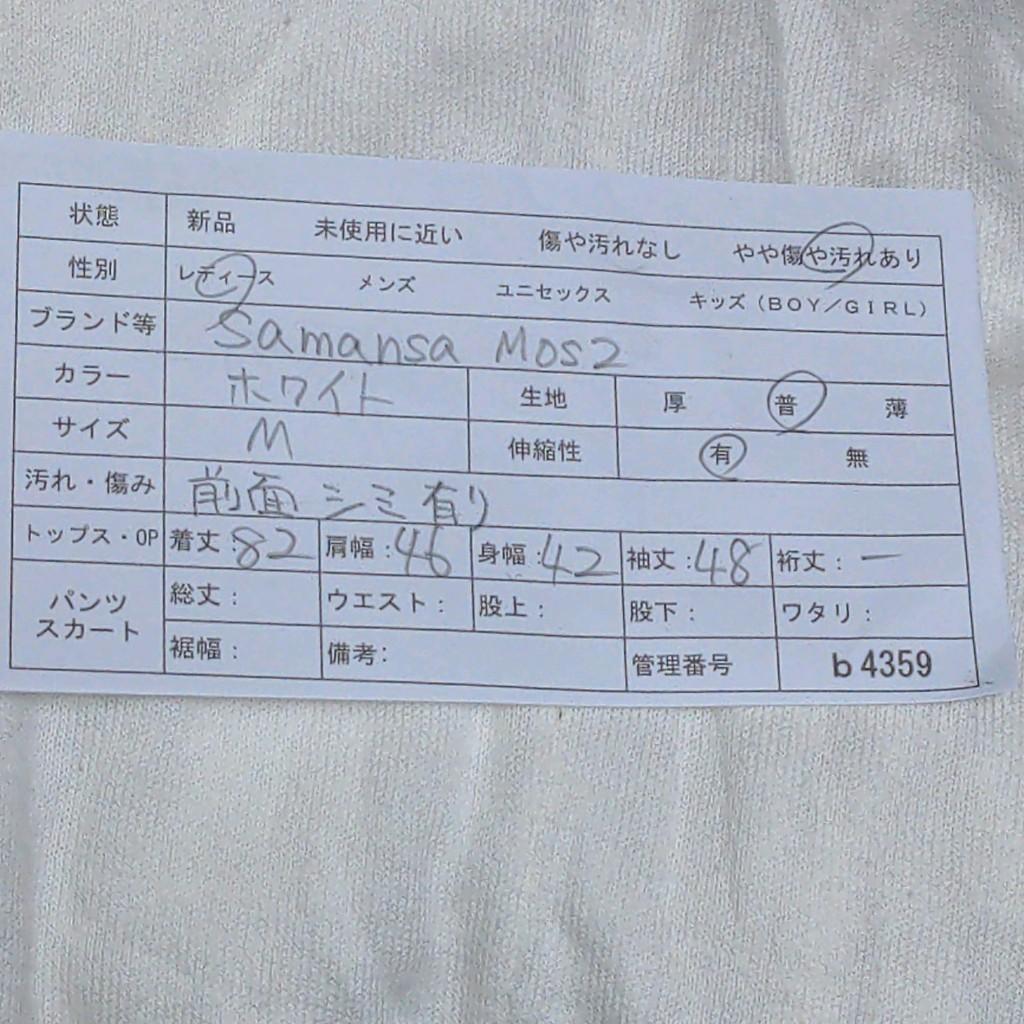 状態 新品 未使用に近い 傷や汚れなし やや傷や汚れあり
性別 レディース メンズ ユニセックス キッズ（BOY／GIRL）
ブランド等 Samansa Mos2
カラー ホワイト 生地 厚 普 薄
サイズ M 伸縮性 有 無
汚れ・傷み 前面 シミ有り
トップス・OP 着丈：82 肩幅：46 身幅：42 袖丈：48 裄丈：ー
パンツ スカート 総丈： ウエスト： 股上： 股下： ワタリ：
裾幅： 備考： 管理番号 b4359